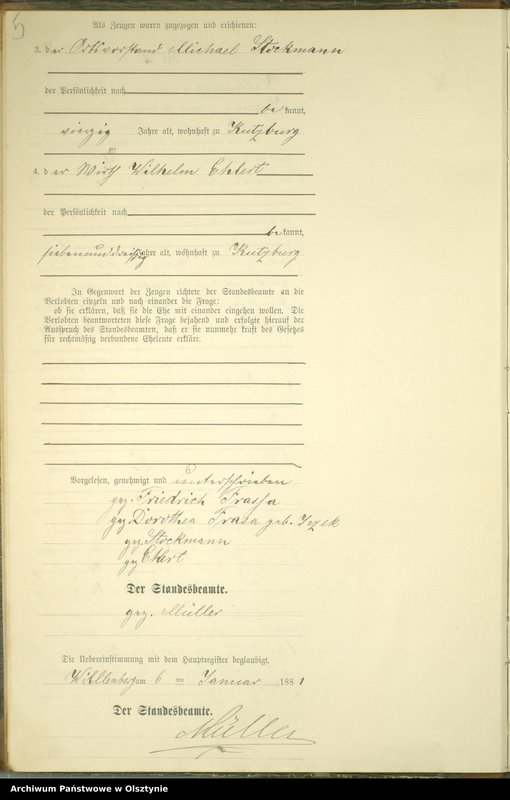 5
Als Zeugen waren zugezogen und erschienen:
3. der Ortsvorstand Michael Stockmann
der Persönlichkeit nach
bekannt,
vierzig Jahre alt, wohnhaft zu Kutzburg
4. der Wirth Wilhelm Ehlert
der Persönlichkeit nach
bekannt,
siebenunddreißig Jahre alt, wohnhaft zu Kutzburg
In Gegenwart der Zeugen richtete der Standesbeamte an die
Verlobten einzeln und nach einander die Frage:
ob sie erklären, daß sie die Ehe mit einander eingehen wollen. Die
Verlobten beantworteten diese Frage bejahend und erfolgte hierauf der
Ausspruch des Standesbeamten, daß er sie nunmehr kraft des Gesetzes
für rechtmäßig verbundene Eheleute erkläre.
Vorgelesen, genehmigt und unterschrieben
gez. Friedrich
gez. Dorothea geb.
gez. Stockmann
gez. Ehlert
Der Standesbeamte.
gez. Müller
Die Uebereinstimmung mit dem Hauptregister beglaubigt.
am 6 ten Januar 1881
Der Standesbeamte.
Müller
Archiwum Państwowe w Olsztynie